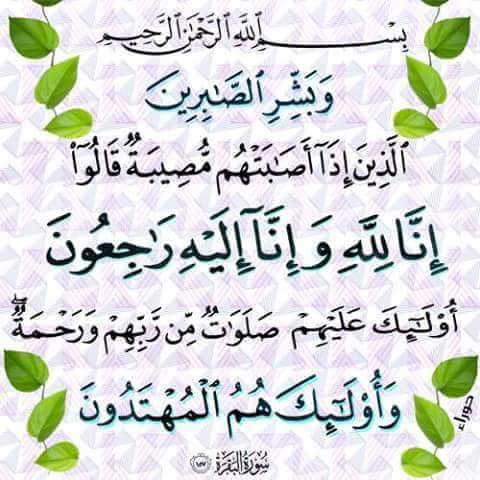 بِسْمِ ٱللَّهِ ٱلرَّحْمَٰنِ ٱلرَّحِيمِ
وَبَشِّرِ ٱلصَّٰبِرِينَ
ٱلَّذِينَ إِذَآ أَصَٰبَتْهُم مُّصِيبَةٌ قَالُوٓا۟
إِنَّا لِلَّهِ وَإِنَّآ إِلَيْهِ رَٰجِعُونَ
أُو۟لَٰٓئِكَ عَلَيْهِمْ صَلَوَٰتٌ مِّن رَّبِّهِمْ وَرَحْمَةٌ ۖ
وَأُو۟لَٰٓئِكَ هُمُ ٱلْمُهْتَدُونَ
حوراء
سُورَةُ البَقَرَةِ ١٥٧